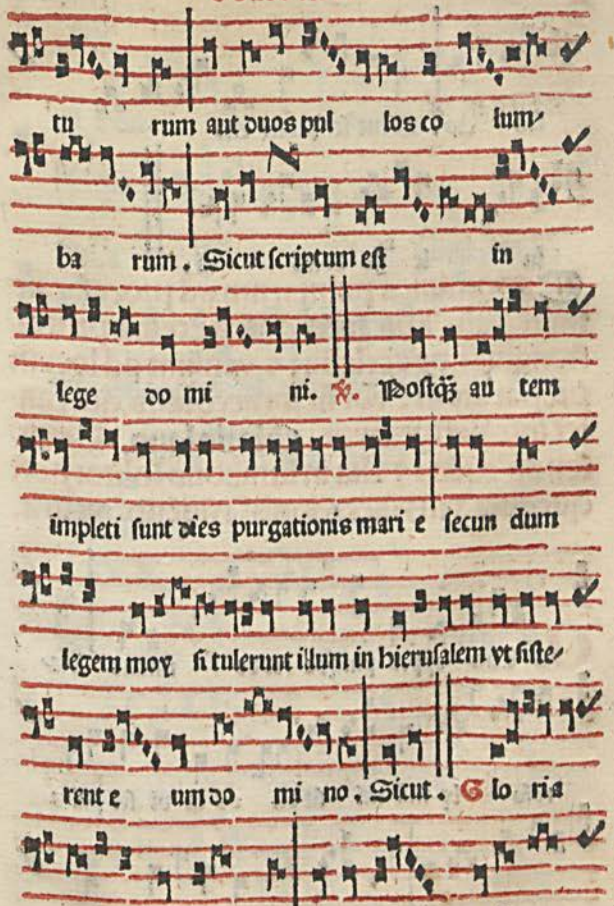 tu rum aut duos pul los co lum⸗
ba rum . Sicut scriptum est in
lege do mi ni. ℣. Postqꝫ au tem
impleti sunt dies purgationis mari e secun dum
legem moy si tulerunt illum in hierusalem vt siste⸗
rent e um do mi no . Sicut . G lo ria